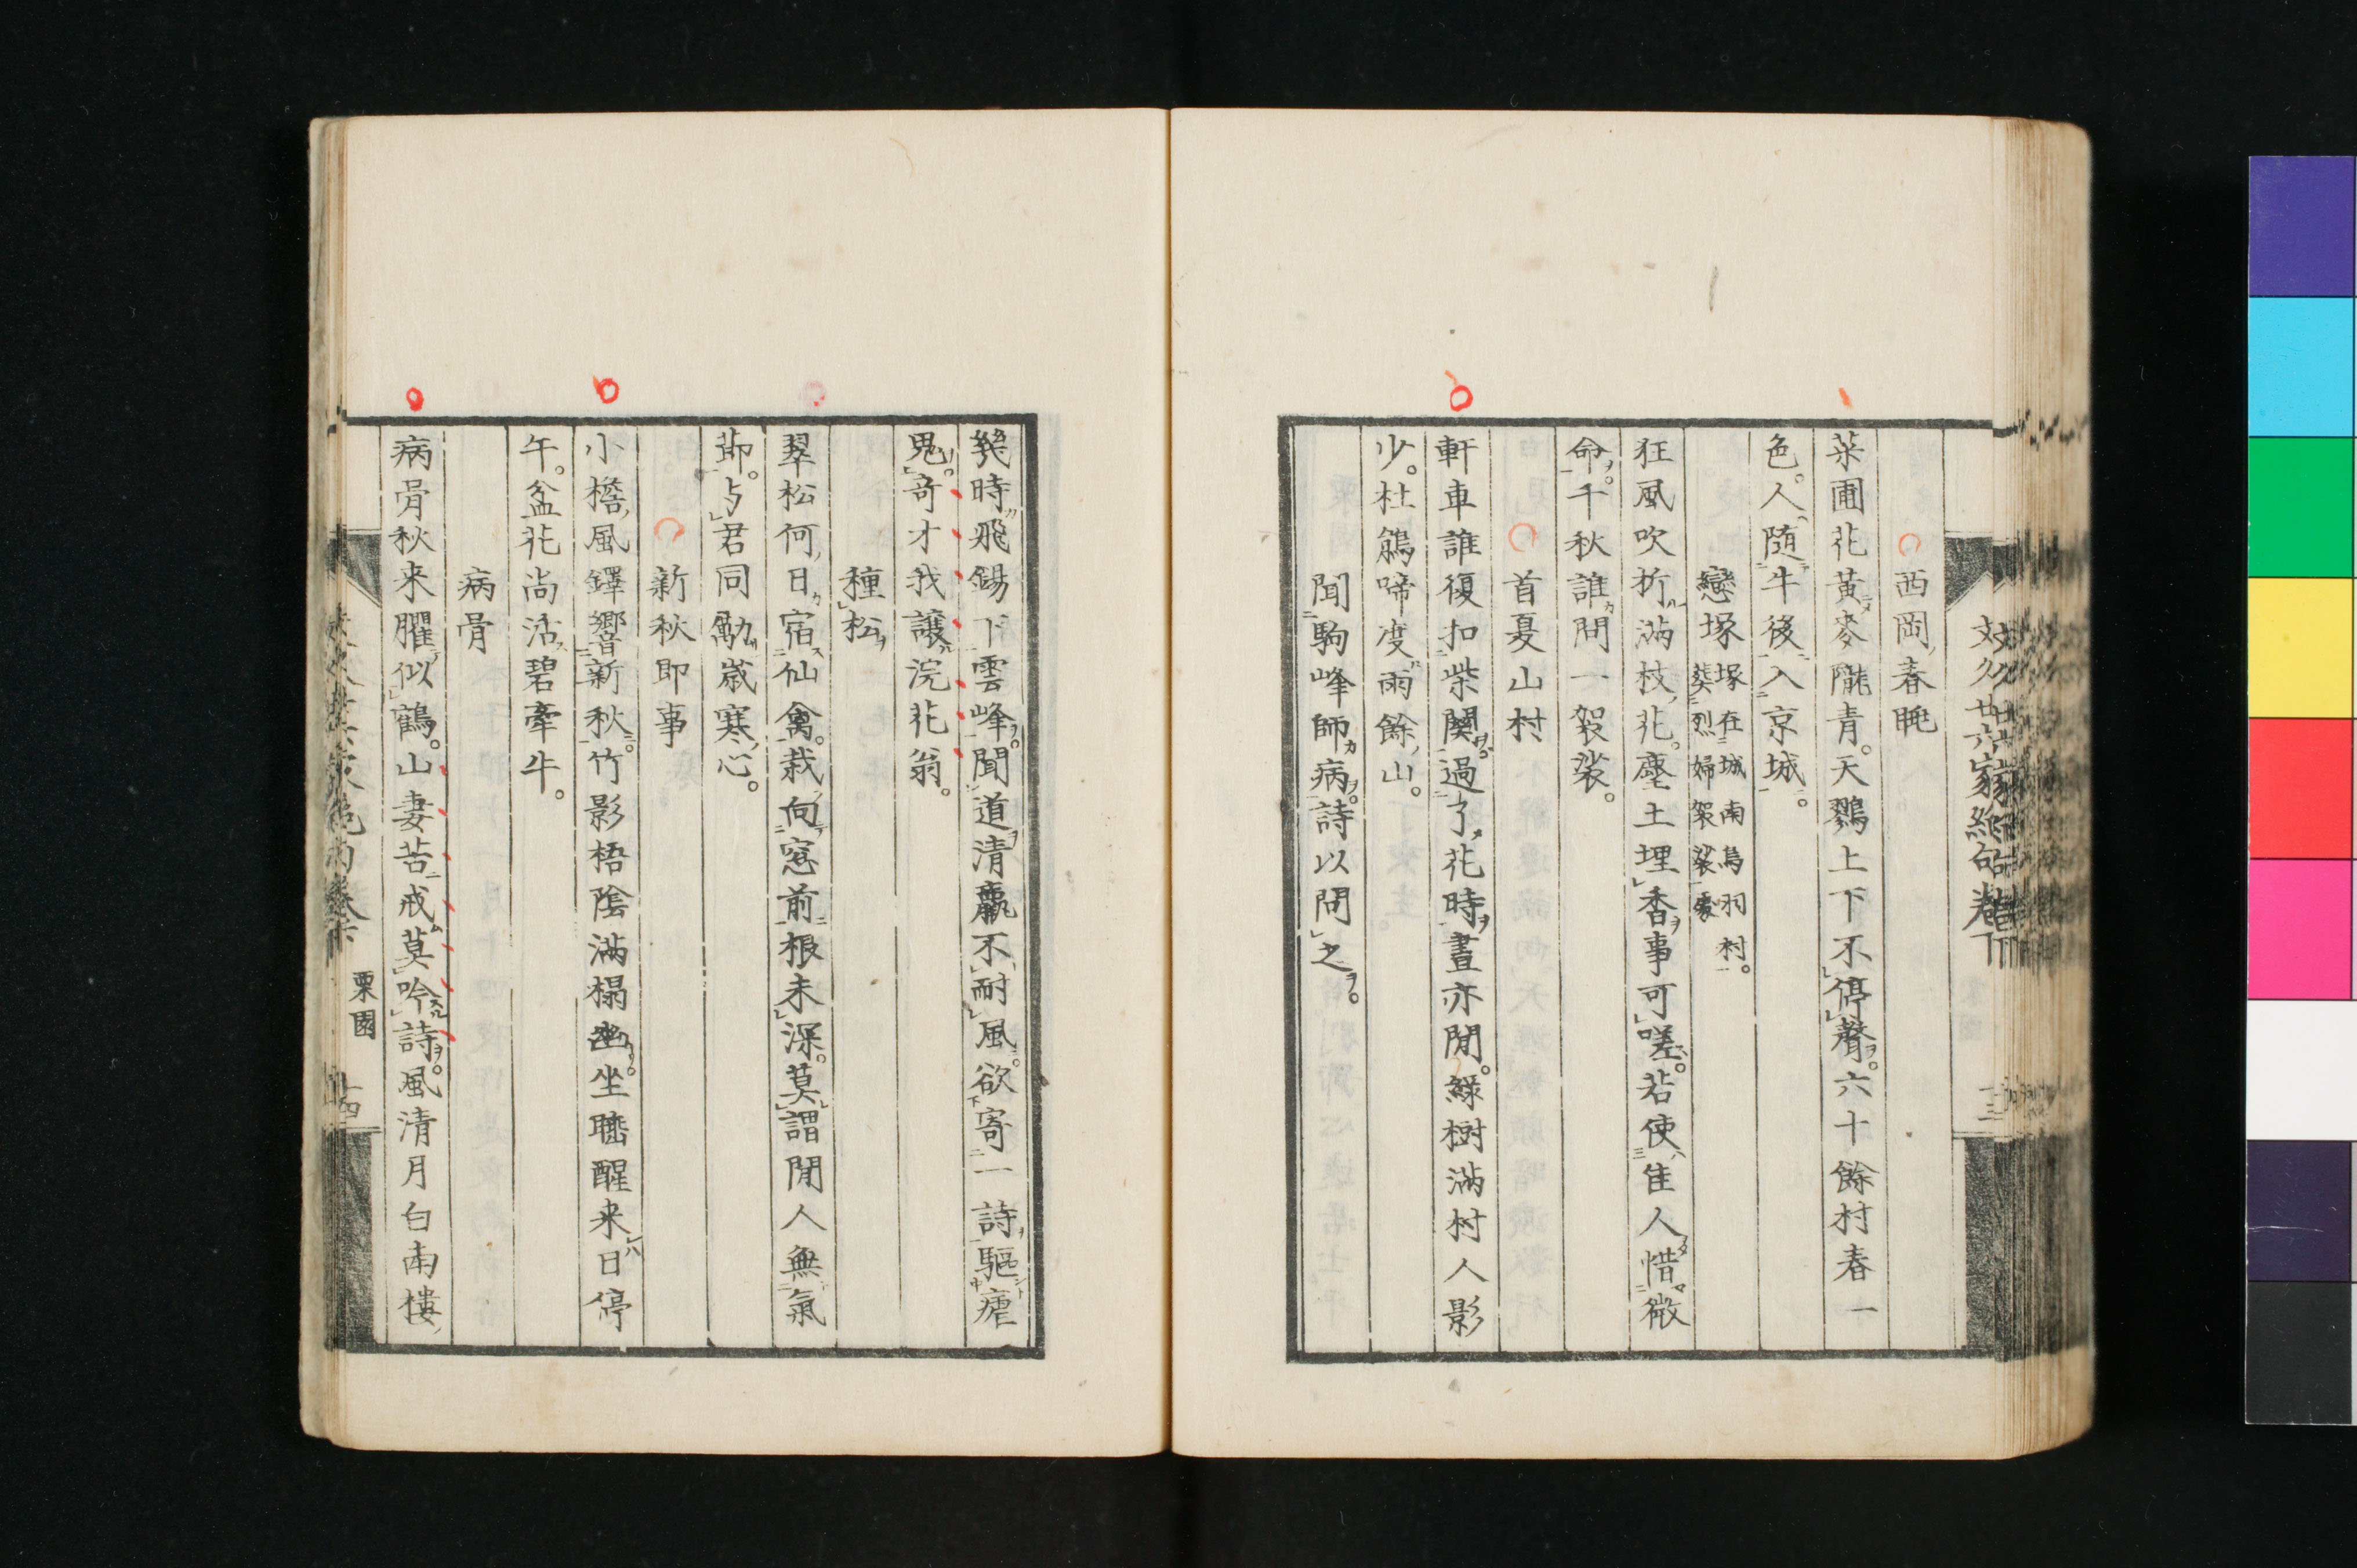 文久廿六家絶句巻下
西岡春晩
菜圃花黄麥隴青。天鷚上下不停聲。六十餘村春一
色。人随牛後入京城。
戀塚 塚在城南鳥羽村。
葬烈婦袈裟處
狂風吹折滿枝花。塵土埋香事可嗟。若使佳人惜微
命。千秋誰問一袈裟。
首夏山村
軒車誰復扣柴關。過了花時晝亦閒。緑樹滿村人影
少。杜鵑啼度雨餘山。
聞駒峰師病。詩以問之。
幾時飛錫下雲峰。聞道清羸不耐風。欲寄一詩驅瘧
鬼。奇才我讓浣花翁。
種松
翠松何日宿仙禽。栽向窓前根未深。莫謂閒人無氣
莭。与君同勵歳寒心。
新秋即事
小檐風鐸響新秋。竹影梧陰滿榻幽。坐睡醒来日停
午。盆花尚活碧牽牛。
病骨
病骨秋来臞似鶴。山妻苦戒莫吟詩。風清月白南樓
栗園
十四